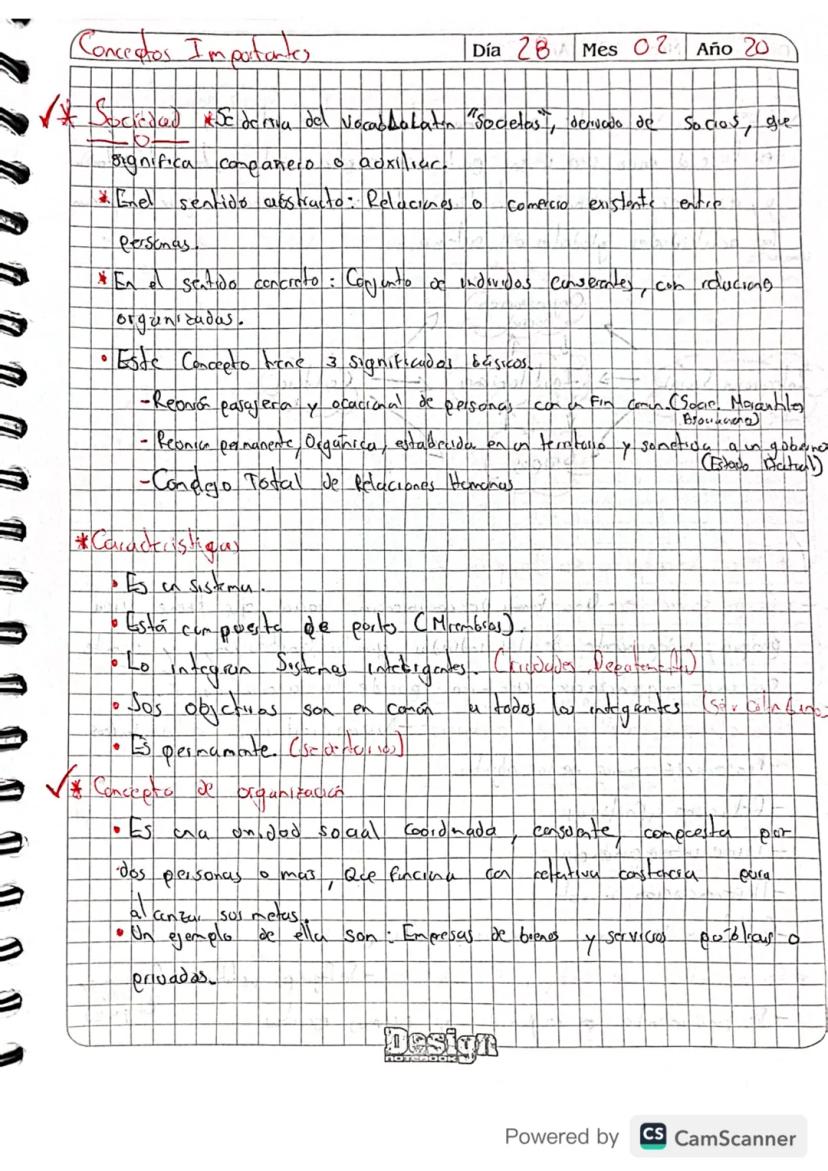 Conceptos Importantes Día 28 Mes 02 Año 20
* Sociedad * Se deriva del vocablo Latin "Societas", derivado de Socios, que
significa compañero o auxiliar.
* En el sentido abstracto: Relaciones o comercio existente entre
personas.
* En el sentido concreto: Conjunto de individuos, con relaciones
organizadas.
• Este Concepto tiene 3 significados básicos.
- Reonión pasajera y ocacional de personas con un Fin común. (Socie. Mercantiles
- Reonion permanente, Orgánica, establecida en un territorio y sometida a un gobierno
(Estado Actual)
- Total de Relaciones Humanas
* Caracteristicas
• Es un sistema.
• Está compuesta de partes (Miembros).
• Lo integran Sistemas inteligentes.
• Sos objectivos son en común a todos los integantes
• Es permamente.
* Concepto de organización
• Es una unidad social Coordinada, consciente, compuesta por
dos personas o mas, Que funciona con relativa constancia para
alcanzar sus metas.
• Un ejemplo de ella son: Empresas de bienes y servicios publicas o
privadas.
Design
NOTEBOOK
Powered by CS CamScanner